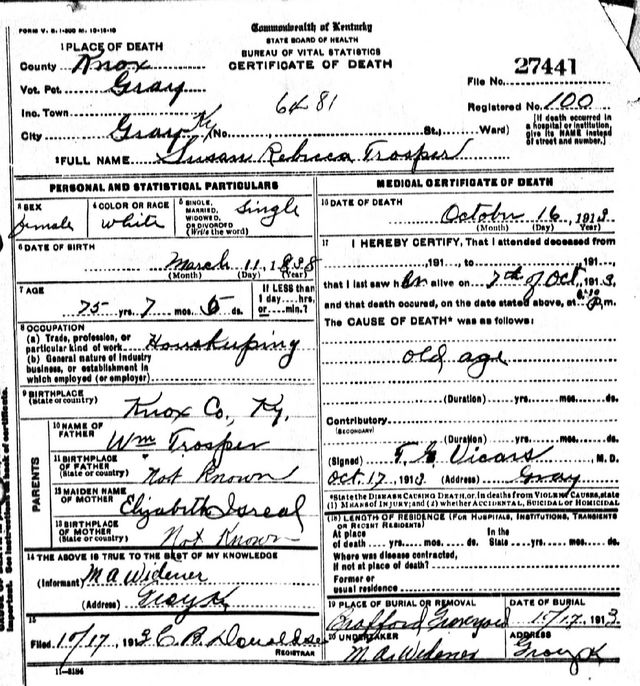 FORM V. S. 1-300 M. 10-16-10
Commonwealth of Kentucky
STATE BOARD OF HEALTH
BUREAU OF VITAL STATISTICS
CERTIFICATE OF DEATH
27441
1 PLACE OF DEATH
County Knox
Vot. Pct. Gray
File No.
Inc. Town
6481
Registered No. 100
City Gray Ky (No., St., Ward)
[If death occurred in a hospital or institution, give its NAME instead of street and number.]
2 FULL NAME Susan Rebecca Trosper
PERSONAL AND STATISTICAL PARTICULARS
3 SEX
female
4 COLOR OR RACE
White
5 SINGLE, MARRIED, WIDOWED, OR DIVORCED (Write the word)
Single
6 DATE OF BIRTH
March 11, 1838
(Month) (Day) (Year)
7 AGE
75 yrs. 7 mos. 5 ds.
If LESS than 1 day....hrs. or....min.?
8 OCCUPATION
(a) Trade, profession, or particular kind of work Housekeeping
(b) General nature of industry business, or establishment in which employed (or employer)
9 BIRTHPLACE
(State or country) Knox Co, Ky,
PARENTS
10 NAME OF FATHER Wm Trosper
11 BIRTHPLACE OF FATHER (State or country) Not Known
12 MAIDEN NAME OF MOTHER Elizabeth Isreal
13 BIRTHPLACE OF MOTHER (State or country) Not Known
14 THE ABOVE IS TRUE TO THE BEST OF MY KNOWLEDGE
(Informant) M A Widener
(Address) Gray K
15
Filed 10/17, 1913 C. B. Donaldson
REGISTRAR
11-3184
MEDICAL CERTIFICATE OF DEATH
16 DATE OF DEATH
October 16, 1913
(Month) (Day) (Year)
17 I HEREBY CERTIFY, That I attended deceased from
, 191, to , 191,
that I last saw her alive on 7th of Oct, 1913,
and that death occurred, on the date stated above, at P.m.
The CAUSE OF DEATH* was as follows:
old age
(Duration) yrs. mos. ds.
Contributory
(SECONDARY)
(Duration) yrs. mos. ds.
(Signed) Vicars, M. D.
Oct. 17, 1913 (Address) Gray
*State the DISEASE CAUSING DEATH, or, in deaths from VIOLENT CAUSES, state
(1) MEANS OF INJURY; and (2) whether ACCIDENTAL, SUICIDAL or HOMICIDAL
(18) LENGTH OF RESIDENCE (FOR HOSPITALS, INSTITUTIONS, TRANSIENTS OR RECENT RESIDENTS)
At place of death yrs. mos. ds. In the State yrs. mos. ds.
Where was disease contracted, if not at place of death?
Former or usual residence
19 PLACE OF BURIAL OR REMOVAL
Graveyard
DATE OF BURIAL
10/17, 1913
20 UNDERTAKER
M. A. Widener
ADDRESS
Gray K